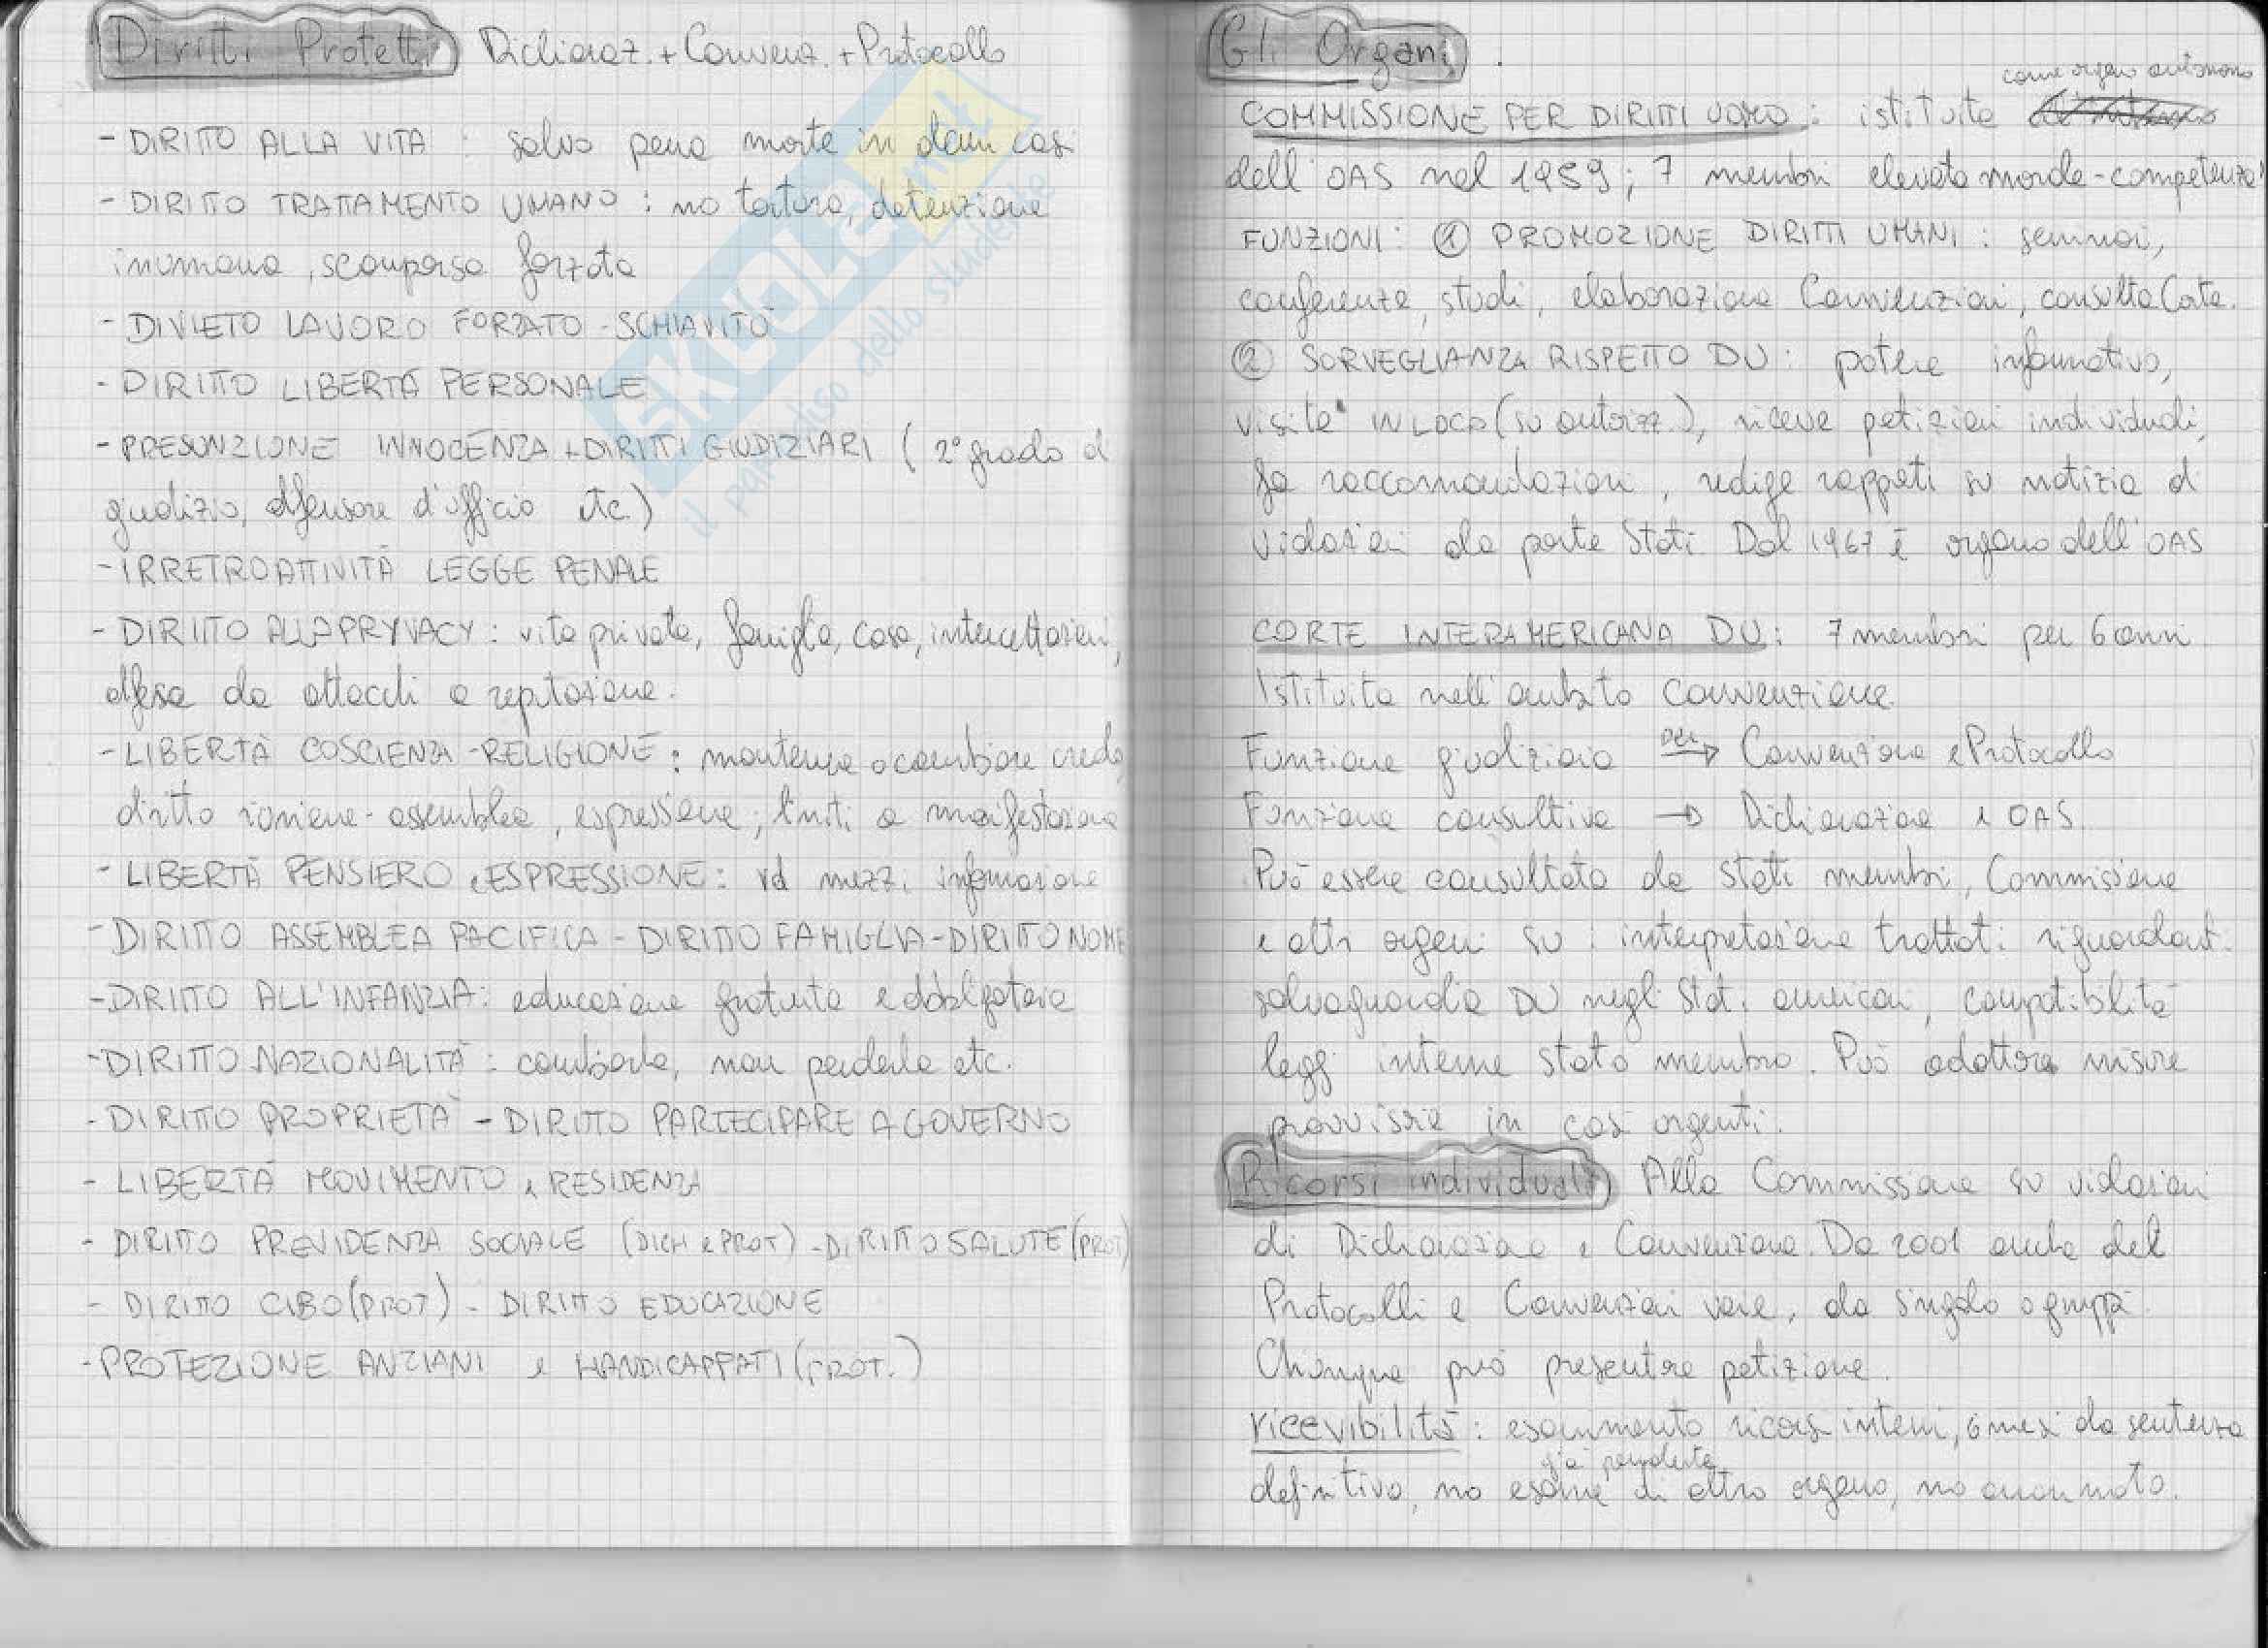 Diritti Protetti Dichiaraz. + Convenz. + Protocollo
- DIRITTO ALLA VITA : salvo pena morte in alcuni casi
- DIRITTO TRATTAMENTO UMANO : no tortura, detenzione
inumana, scomparsa forzata
- DIVIETO LAVORO FORZATO - SCHIAVITÙ
- DIRITTO LIBERTÀ PERSONALE
- PRESUNZIONE INNOCENZA + DIRITTI GIUDIZIARI ( 2° grado di
giudizio, difensore d'ufficio etc.)
- IRRETROATTIVITÀ LEGGE PENALE
- DIRITTO ALLA PRYVACY : vita privata, famiglia, casa, intercettazioni,
difesa da attacchi a reputazione.
- LIBERTÀ COSCIENZA - RELIGIONE : mantenere o cambiare credo,
diritto riunione - assemblea, espressione; limiti a manifestazione
- LIBERTÀ PENSIERO e ESPRESSIONE : vd mezzi informazione
- DIRITTO ASSEMBLEA PACIFICA - DIRITTO FAMIGLIA - DIRITTO NOME
- DIRITTO ALL'INFANZIA : educazione gratuita e obbligatoria
- DIRITTO NAZIONALITÀ : cambiarla, non perderla etc.
- DIRITTO PROPRIETÀ - DIRITTO PARTECIPARE A GOVERNO
- LIBERTÀ MOVIMENTO e RESIDENZA
- DIRITTO PREVIDENZA SOCIALE (DICH e PROT) - DIRITTO SALUTE (PROT)
- DIRITTO CIBO (PROT) - DIRITTO EDUCAZIONE
- PROTEZIONE ANZIANI e HANDICAPPATI (PROT.)
Gli Organi :
come organo autonomo
COMMISSIONE PER DIRITTI UOMO : istituita
dell'OAS nel 1959; 7 membri elevata morale - competenza
FUNZIONI : ① PROMOZIONE DIRITTI UMANI : seminari,
conferenze, studi, elaborazione Convenzioni, consulta Corte.
② SORVEGLIANZA RISPETTO DU : potere informativo,
visite IN LOCO (su autorizz.), riceve petizioni individuali,
fa raccomandazioni, redige rapporti su notizia di
violazioni da parte Stati. Dal 1967 è organo dell'OAS
CORTE INTERAMERICANA DU : 7 membri per 6 anni
Istituita nell'ambito convenzione.
Funzione giudiziaria per → Convenzione e Protocollo
Funzione consultiva → Dichiarazione e OAS.
Può essere consultata da stati membri, Commissione
e altri organi su : interpretazione trattati riguardanti
salvaguardia DU negli Stati americani, compatibilità
leggi interne stato membro. Può adottare misure
provvisorie in casi urgenti.
Ricorsi individuali Alla Commissione su violazioni
di Dichiarazione e Convenzione. Da 2001 anche del
Protocolli e Convenzioni varie, da singolo o gruppi.
Chiunque può presentare petizione.
ricevibilità : esaurimento ricorsi interni, 6 mesi da sentenza
già pendente
definitiva, no esame di altro organo, no anonimato.
SKUOLA.net
il paradiso dello studente